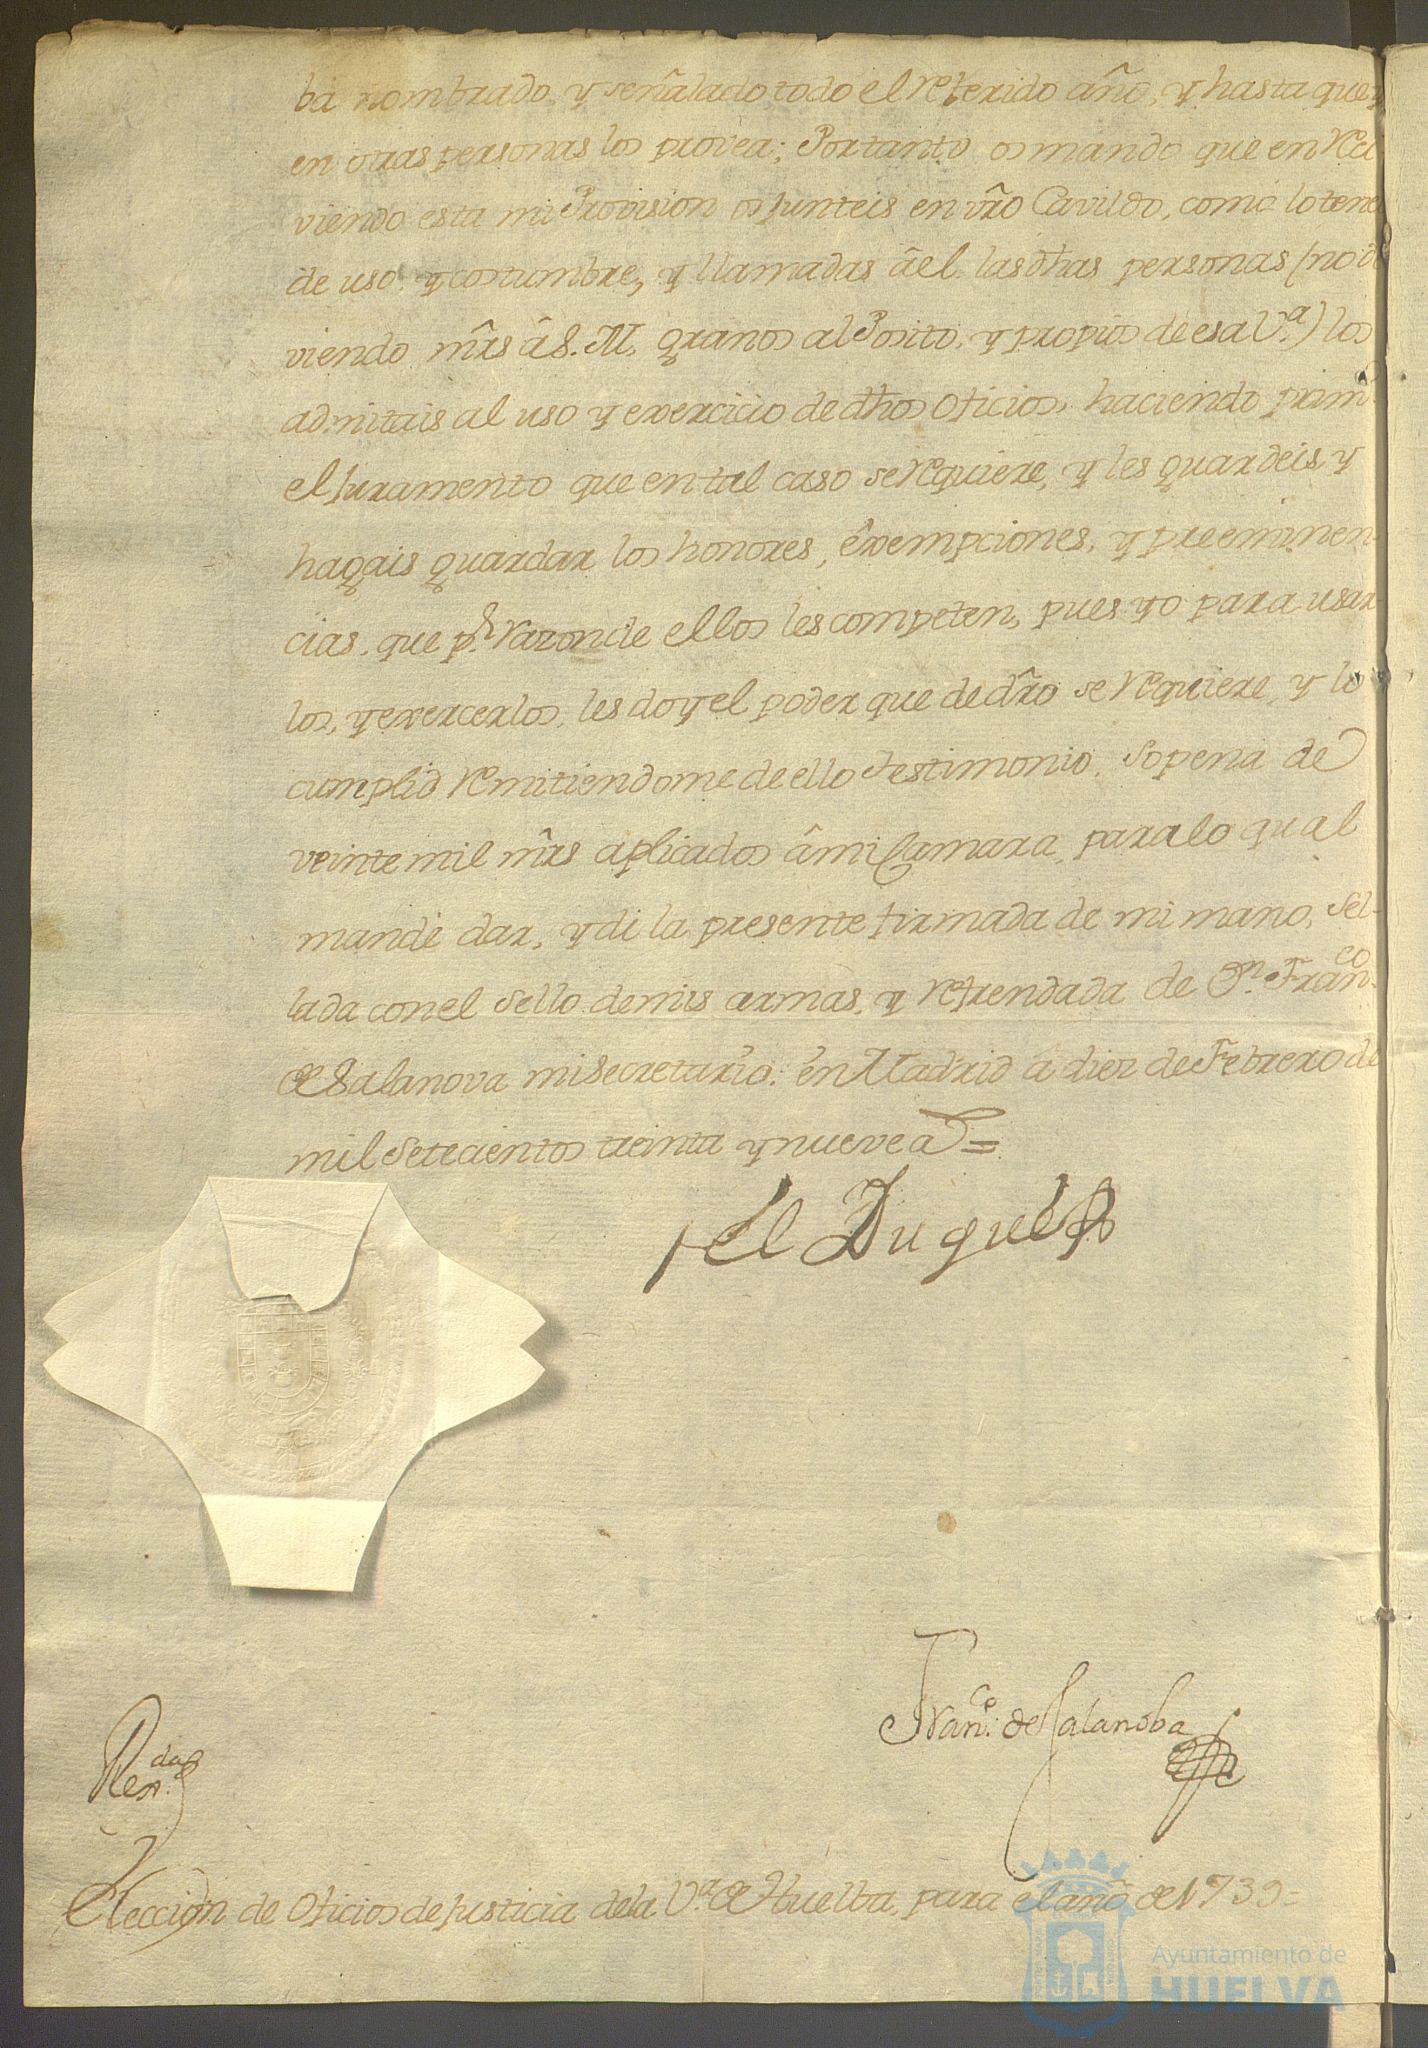 ba nombrado, y señalado todo el referido año, y hasta que
en otras personas los provea; Portanto os mando que en Reci
viendo esta mi Provision os Junteis en vr̃o Cavildo, como lo tene
de uso, y costumbre, y llamadas â el las dhas personas (no de
viendo mr̃s â S. M. granos al Posito, y propios de esa V.ª) los
admitais al uso y exercicio de dhos oficios, haciendo prim.º
el Juramento que en tal caso se Requiere, y les guardeis, y
hagais guardar los honores, êxempciones, y preeminen-
cias, que p.r razon de ellos les competen, pues yo para usar
los, y exercerlos, les doy el poder que de dr̃o se Requiere, y lo
cumplid Remitiendome de ello Testimonio, Sopena de
veinte mil mr̃s aplicados â mi Camara, para lo qual
mandè dar, y di la presente firmada de mi mano, Sel-
lada con el Sello de mis armas, y Refrendada de D.n Fran.co
de Salanova mi Secretario. en Madrid a diez de Febrero de
mil Setecientos treinta y nueve a.s =
El Duque
Fran.co de Salanoba
Rex.da
Eleccion de Oficios de Justicia de la V.ª de Huelba, para el año de 1739=
Ayuntamiento de
HUELVA